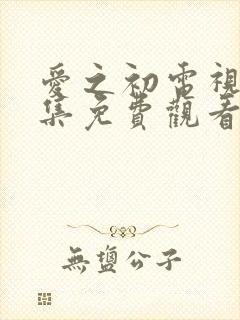 愛之初電視
集免費觀看
無鹽公子